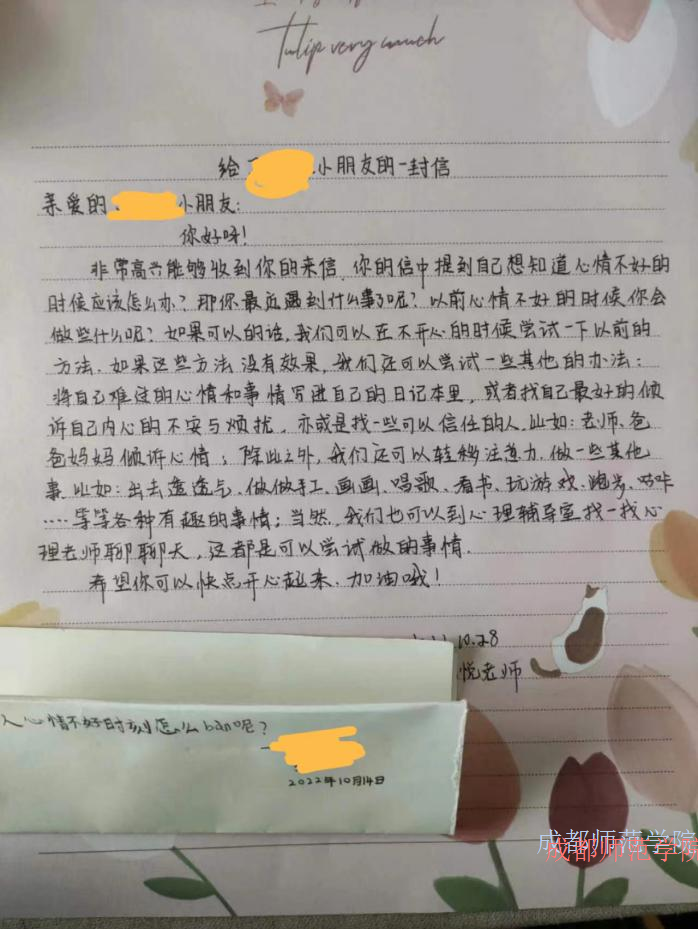 Tulip very much
给 小朋友的一封信
亲爱的 小朋友:
你好呀!
非常高兴能够收到你的来信,你的信中提到自己想知道心情不好的
时候应该怎么办?那你最近遇到什么事了呢?以前心情不好的时候你会
做些什么呢?如果可以的话,我们可以在不开心的时候尝试一下以前的
方法,如果这些方法没有效果,我们还可以尝试一些其他的办法:
将自己难过的心情和事情写进自己的日记本里,或者找自己最好的倾
诉自己内心的不安与烦扰,亦或是找一些可以信任的人,比如:老师、爸
爸妈妈倾诉心情;除此之外,我们还可以转移注意力,做一些其他
事,比如:出去透透气、做做手工、画画、唱歌、看书、玩游戏、跑步、
....等等各种有趣的事情;当然,我们也可以到心理辅导室找一找心
理老师聊聊天,这都是可以尝试做的事情.
希望你可以快点开心起来,加油哦!
10.28
悦老师
人心情不好时刻怎么bàn呢?
2022年10月14日
成都师范学院
成都师范学院